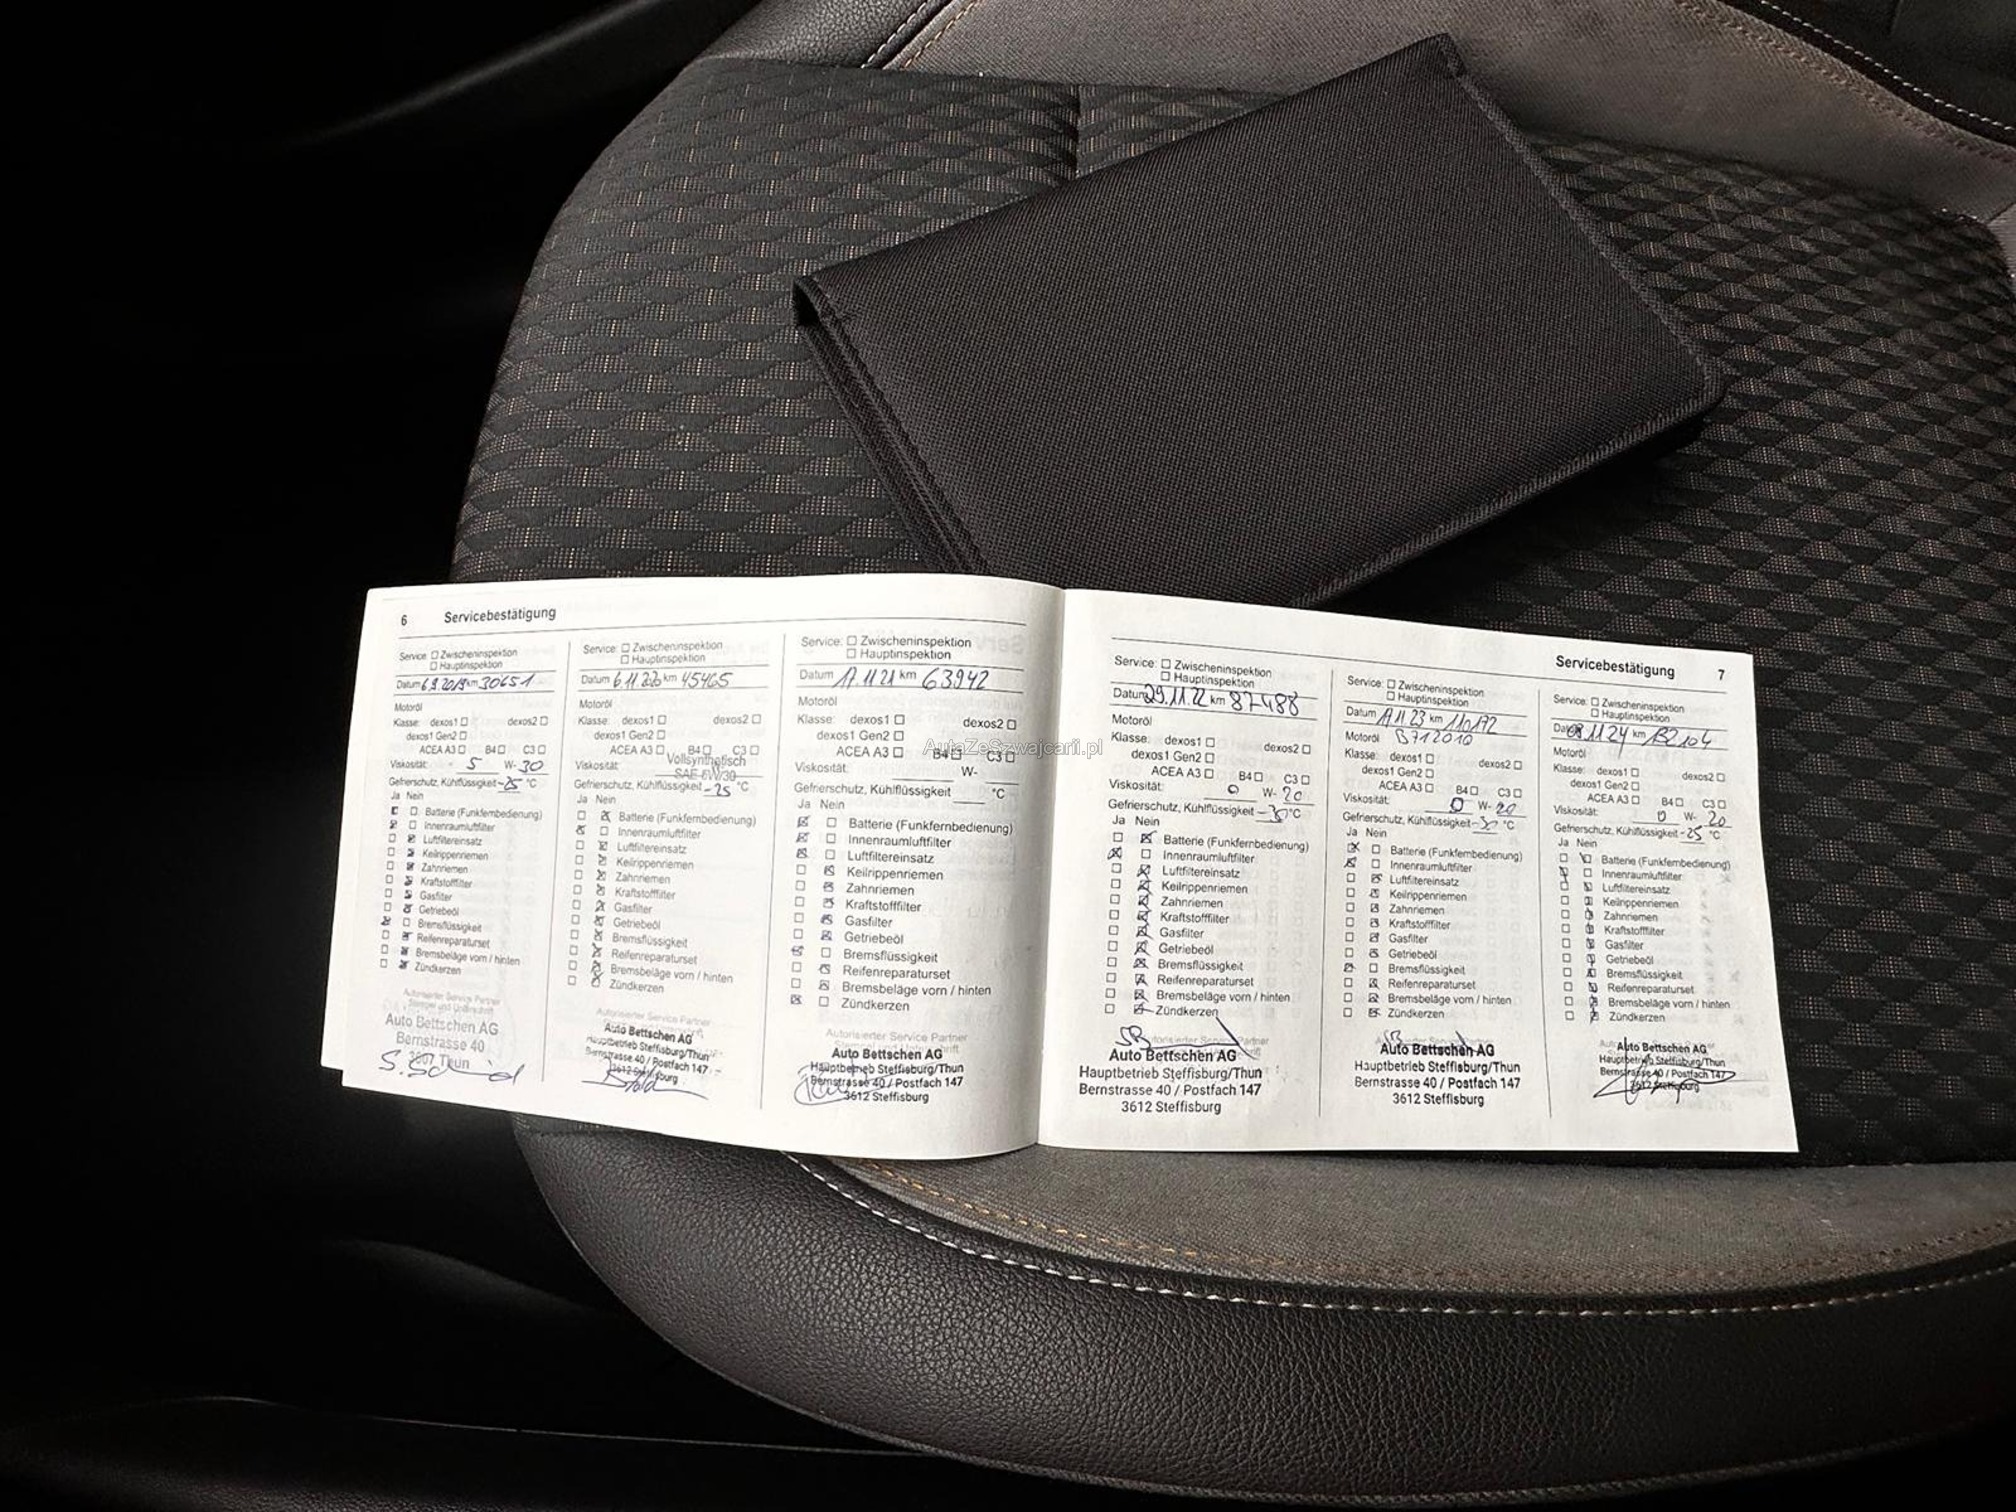 6 Servicebestätigung
Service: Zwischeninspektion
Hauptinspektion
Datum 6.9.2019 km 30651
Motoröl
Klasse: dexos1 dexos2
dexos1 Gen2
ACEA A3 B4 C3
Viskosität: 5 W- 30
Gefrierschutz, Kühlflüssigkeit -25 °C
Ja Nein
Batterie (Funkfernbedienung)
Innenraumluftfilter
Luftfiltereinsatz
Keilrippenriemen
Zahnriemen
Kraftstofffilter
Gasfilter
Getriebeöl
Bremsflüssigkeit
Reifenreparaturset
Bremsbeläge vorn / hinten
Zündkerzen
Autorisierter Service Partner
Stempel und Unterschrift
Auto Bettschen AG
Bernstrasse 40
Thun
Service: Zwischeninspektion
Hauptinspektion
Datum 6.11.2020 km 45465
Motoröl
Klasse: dexos1 dexos2
dexos1 Gen2
ACEA A3 B4 C3
Vollsynthetisch
Viskosität: SAE 5W/30
Gefrierschutz, Kühlflüssigkeit -25 °C
Ja Nein
Batterie (Funkfernbedienung)
Innenraumluftfilter
Luftfiltereinsatz
Keilrippenriemen
Zahnriemen
Kraftstofffilter
Gasfilter
Getriebeöl
Bremsflüssigkeit
Reifenreparaturset
Bremsbeläge vorn / hinten
Zündkerzen
Autorisierter Service Partner
Auto Bettschen AG
Hauptbetrieb Steffisburg/Thun
Bernstrasse 40 / Postfach 147
3612 Steffisburg
Service: Zwischeninspektion
Hauptinspektion
Datum 17.11.21 km 63942
Motoröl
Klasse: dexos1 dexos2
dexos1 Gen2
ACEA A3 B4 C3
Viskosität: W-
Gefrierschutz, Kühlflüssigkeit °C
Ja Nein
Batterie (Funkfernbedienung)
Innenraumluftfilter
Luftfiltereinsatz
Keilrippenriemen
Zahnriemen
Kraftstofffilter
Gasfilter
Getriebeöl
Bremsflüssigkeit
Reifenreparaturset
Bremsbeläge vorn / hinten
Zündkerzen
Autorisierter Service Partner
Stempel und Unterschrift
Auto Bettschen AG
Hauptbetrieb Steffisburg/Thun
Bernstrasse 40 / Postfach 147
3612 Steffisburg
AutaZeSzwajcarii.pl
Servicebestätigung 7
Service: Zwischeninspektion
Hauptinspektion
Datum 29.11.22 km 87488
Motoröl
Klasse: dexos1 dexos2
dexos1 Gen2
ACEA A3 B4 C3
Viskosität: 0 W- 20
Gefrierschutz, Kühlflüssigkeit °C
Ja Nein
Batterie (Funkfernbedienung)
Innenraumluftfilter
Luftfiltereinsatz
Keilrippenriemen
Zahnriemen
Kraftstofffilter
Gasfilter
Getriebeöl
Bremsflüssigkeit
Reifenreparaturset
Bremsbeläge vorn / hinten
Zündkerzen
Autorisierter Service Partner
Auto Bettschen AG
Hauptbetrieb Steffisburg/Thun
Bernstrasse 40 / Postfach 147
3612 Steffisburg
Service: Zwischeninspektion
Hauptinspektion
Datum km 110172
Motoröl B712010
Klasse: dexos1 dexos2
dexos1 Gen2
ACEA A3 B4 C3
Viskosität: 0 W- 20
Gefrierschutz, Kühlflüssigkeit °C
Ja Nein
Batterie (Funkfernbedienung)
Innenraumluftfilter
Luftfiltereinsatz
Keilrippenriemen
Zahnriemen
Kraftstofffilter
Gasfilter
Getriebeöl
Bremsflüssigkeit
Reifenreparaturset
Bremsbeläge vorn / hinten
Zündkerzen
Auto Bettschen AG
Hauptbetrieb Steffisburg/Thun
Bernstrasse 40 / Postfach 147
3612 Steffisburg
Service: Zwischeninspektion
Hauptinspektion
Datum 08.11.24 km 132104
Motoröl
Klasse: dexos1 dexos2
dexos1 Gen2
ACEA A3 B4 C3
Viskosität: 0 W- 20
Gefrierschutz, Kühlflüssigkeit -25 °C
Ja Nein
Batterie (Funkfernbedienung)
Innenraumluftfilter
Luftfiltereinsatz
Keilrippenriemen
Zahnriemen
Kraftstofffilter
Gasfilter
Getriebeöl
Bremsflüssigkeit
Reifenreparaturset
Bremsbeläge vorn / hinten
Zündkerzen
Auto Bettschen AG
Hauptbetrieb Steffisburg/Thun
Bernstrasse 40 / Postfach 147
3612 Steffisburg